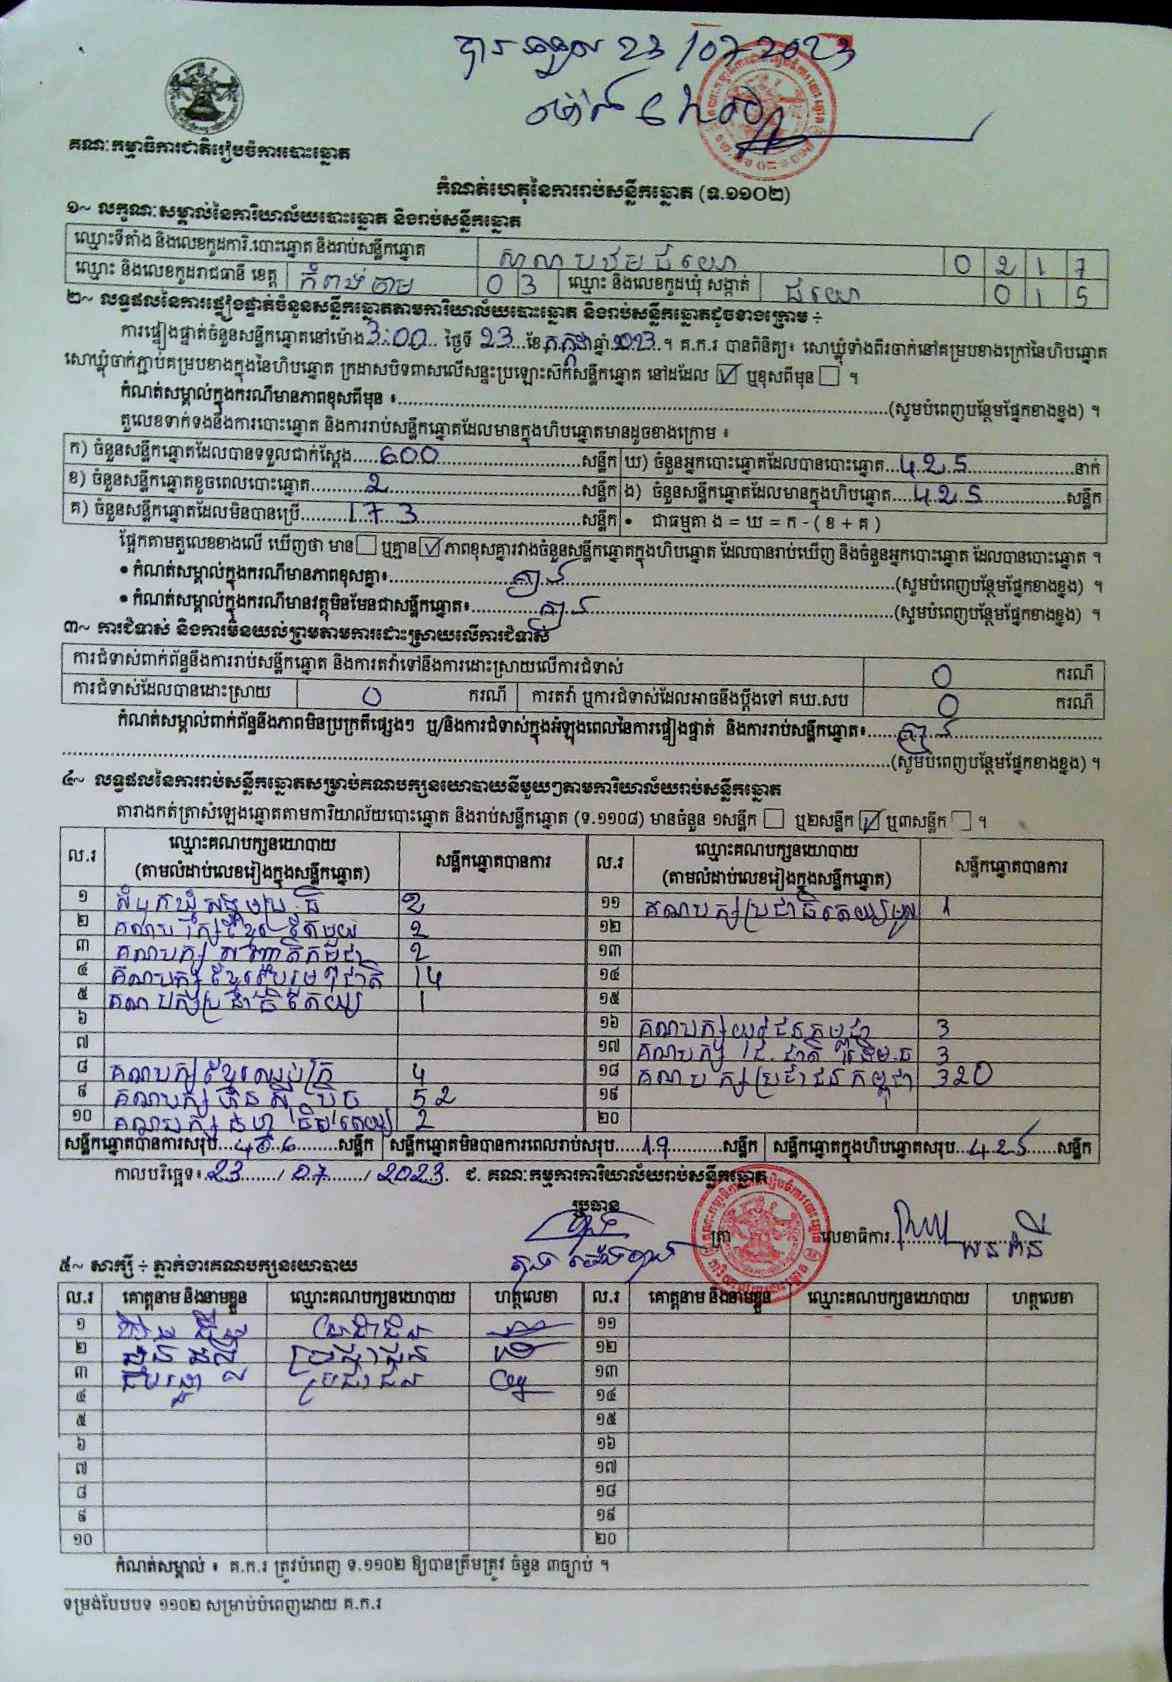 បានទទួល 23/07/2023
គណៈកម្មាធិការជាតិរៀបចំការបោះឆ្នោត
កំណត់ហេតុនៃការរាប់សន្លឹកឆ្នោត (ទ.១១០២)
១~ លក្ខណៈសម្គាល់នៃការិយាល័យបោះឆ្នោត និងរាប់សន្លឹកឆ្នោត
ឈ្មោះទីតាំង និងលេខកូដការិ.បោះឆ្នោត និងរាប់សន្លឹកឆ្នោត 0 2 1 7
ឈ្មោះ និងលេខកូដរាជធានី ខេត្ត កំពង់ចាម 0 3 ឈ្មោះ និងលេខកូដឃុំ សង្កាត់ 0 1 5
២~ លទ្ធផលនៃការផ្ទៀងផ្ទាត់ចំនួនសន្លឹកឆ្នោតតាមការិយាល័យបោះឆ្នោត និងរាប់សន្លឹកឆ្នោតដូចខាងក្រោម ÷
ការផ្ទៀងផ្ទាត់ចំនួនសន្លឹកឆ្នោតនៅម៉ោង 3:00 ថ្ងៃទី 23 ខែ កក្កដា ឆ្នាំ 2023 ។ គ.ក.រ បានពិនិត្យ៖ សោឃ្លុំទាំងពីរចាក់នៅគម្របខាងក្រៅនៃហិបឆ្នោត
សោឃ្លុំចាក់ភ្ជាប់គម្របខាងក្នុងនៃហិបឆ្នោត ក្រដាសបិទពាសលើសន្ទះប្រឡោះស៊កសន្លឹកឆ្នោត នៅដដែល ☑ ឬខុសពីមុន ☐ ។
កំណត់សម្គាល់ក្នុងករណីមានភាពខុសពីមុន ៖ (សូមបំពេញបន្ថែមផ្នែកខាងខ្នង) ។
តួលេខទាក់ទងនឹងការបោះឆ្នោត និងការរាប់សន្លឹកឆ្នោតដែលមានក្នុងហិបឆ្នោតមានដូចខាងក្រោម ៖
ក) ចំនួនសន្លឹកឆ្នោតដែលបានទទួលជាក់ស្តែង 600 សន្លឹក ឃ) ចំនួនអ្នកបោះឆ្នោតដែលបានបោះឆ្នោត 425 នាក់
ខ) ចំនួនសន្លឹកឆ្នោតខូចពេលបោះឆ្នោត 2 សន្លឹក ង) ចំនួនសន្លឹកឆ្នោតដែលមានក្នុងហិបឆ្នោត 425 សន្លឹក
គ) ចំនួនសន្លឹកឆ្នោតដែលមិនបានប្រើ 173 សន្លឹក • ជាធម្មតា ង = ឃ = ក - ( ខ + គ )
ផ្អែកតាមតួលេខខាងលើ ឃើញថា មាន ☐ ឬគ្មាន ☑ ភាពខុសគ្នារវាងចំនួនសន្លឹកឆ្នោតក្នុងហិបឆ្នោត ដែលបានរាប់ឃើញ និងចំនួនអ្នកបោះឆ្នោត ដែលបានបោះឆ្នោត ។
• កំណត់សម្គាល់ក្នុងករណីមានភាពខុសគ្នា៖ គ្មាន (សូមបំពេញបន្ថែមផ្នែកខាងខ្នង) ។
• កំណត់សម្គាល់ក្នុងករណីមានវត្ថុមិនមែនជាសន្លឹកឆ្នោត៖ គ្មាន (សូមបំពេញបន្ថែមផ្នែកខាងខ្នង) ។
៣~ ការជំទាស់ និងការមិនយល់ព្រមតាមការដោះស្រាយលើការជំទាស់
ការជំទាស់ពាក់ព័ន្ធនឹងការរាប់សន្លឹកឆ្នោត និងការតវ៉ាទៅនឹងការដោះស្រាយលើការជំទាស់ 0 ករណី
ការជំទាស់ដែលបានដោះស្រាយ 0 ករណី ការតវ៉ា ឬការជំទាស់ដែលអាចនឹងប្តឹងទៅ គឃ.សប 0 ករណី
កំណត់សម្គាល់ពាក់ព័ន្ធនឹងភាពមិនប្រក្រតីផ្សេងៗ ឬ/និងការជំទាស់ក្នុងអំឡុងពេលនៃការផ្ទៀងផ្ទាត់ និងការរាប់សន្លឹកឆ្នោត៖ គ្មាន
(សូមបំពេញបន្ថែមផ្នែកខាងខ្នង) ។
៤~ លទ្ធផលនៃការរាប់សន្លឹកឆ្នោតសម្រាប់គណបក្សនយោបាយនីមួយៗតាមការិយាល័យរាប់សន្លឹកឆ្នោត
តារាងកត់ត្រាសំឡេងឆ្នោតតាមការិយាល័យបោះឆ្នោត និងរាប់សន្លឹកឆ្នោត (ទ.១១០៨) មានចំនួន ១សន្លឹក ☐ ឬ២សន្លឹក ☑ ឬ៣សន្លឹក ☐ ។
ល.រ ឈ្មោះគណបក្សនយោបាយ (តាមលំដាប់លេខរៀងក្នុងសន្លឹកឆ្នោត) សន្លឹកឆ្នោតបានការ ល.រ ឈ្មោះគណបក្សនយោបាយ (តាមលំដាប់លេខរៀងក្នុងសន្លឹកឆ្នោត) សន្លឹកឆ្នោតបានការ
១ សំបុកឃ្មុំសង្គមប្រ.ធិ 2 ១១ គណបក្សប្រជាធិបតេយ្យមូល 1
២ គណបក្សខ្មែរតែមួយ 2 ១២
៣ គណបក្ស 2 ១៣
៤ គណបក្សខ្មែររួបរួមជាតិ 14 ១៤
៥ គណបក្សប្រជាធិបតេយ្យ 1 ១៥
៦ ១៦ គណបក្សយុវជនកម្ពុជា 3
៧ ១៧ គណបក្ស 3
៨ គណបក្សខ្មែរឈប់ក្រ 4 ១៨ គណបក្សប្រជាជនកម្ពុជា 320
៩ គណបក្សហ៊្វុនស៊ិនប៉ិច 52 ១៩
១០ គណបក្ស 2 ២០
សន្លឹកឆ្នោតបានការសរុប 406 សន្លឹក សន្លឹកឆ្នោតមិនបានការពេលរាប់សរុប 19 សន្លឹក សន្លឹកឆ្នោតក្នុងហិបឆ្នោតសរុប 425 សន្លឹក
កាលបរិច្ឆេទ៖ 23 / 07 / 2023 ជ. គណៈកម្មការការិយាល័យរាប់សន្លឹកឆ្នោត
ប្រធាន
ត្រា លេខាធិការ
៥~ សាក្សី ÷ ភ្នាក់ងារគណបក្សនយោបាយ
ល.រ គោត្តនាម និងនាមខ្លួន ឈ្មោះគណបក្សនយោបាយ ហត្ថលេខា ល.រ គោត្តនាម និងនាមខ្លួន ឈ្មោះគណបក្សនយោបាយ ហត្ថលេខា
១ ប្រជាជន ១១
២ ប្រជាជន ១២
៣ ប្រជាជន ១៣
៤ ១៤
៥ ១៥
៦ ១៦
៧ ១៧
៨ ១៨
៩ ១៩
១០ ២០
កំណត់សម្គាល់ ៖ គ.ក.រ ត្រូវបំពេញ ទ.១១០២ ឱ្យបានត្រឹមត្រូវ ចំនួន ៣ច្បាប់ ។
ទម្រង់បែបបទ ១១០២ សម្រាប់បំពេញដោយ គ.ក.រ